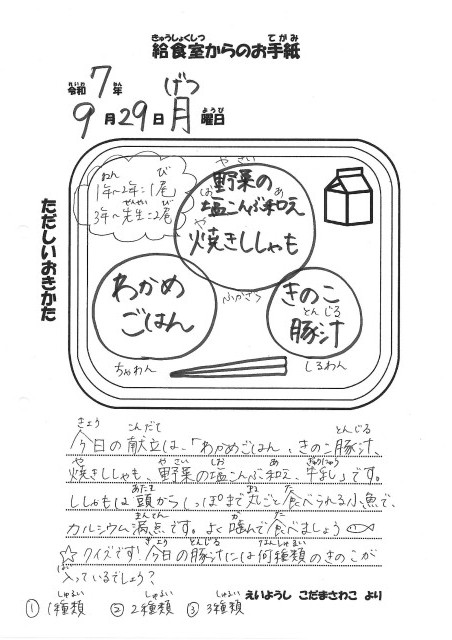 きゅうしょくしつ てがみ
給食室からのお手紙
れいわ ねん げつ
令和7年
ようび
9月29日月曜日
ただしいおきかた
ねん び
1年~2年=1尾
せんせい び
3年~先生=2尾
やさい
野菜の
しお あ
塩こんぶ和え
や
焼きししゃも
ふかざら
わかめ
ごはん
ちゃわん
きのこ
とん じる
豚汁
しるわん
きょう こんだて とんじる
今日の献立は、「わかめごはん、きのこ豚汁、
や やさい しお あ ぎゅうにゅう
焼きししゃも、野菜の塩こんぶ和え、牛乳」です。
あたま まる た
ししゃもは頭からしっぽまで丸ごと食べられる小魚で、
まんてん か た
カルシウム満点です。よく噛んで食べましょう
きょう とんじる なんしゅるい
☆クイズです!今日の豚汁には何種類のきのこが
はい
入っているでしょう?
しゅるい しゅるい しゅるい
①1種類 ②2種類 ③3種類
えいようし こだまさわこ より